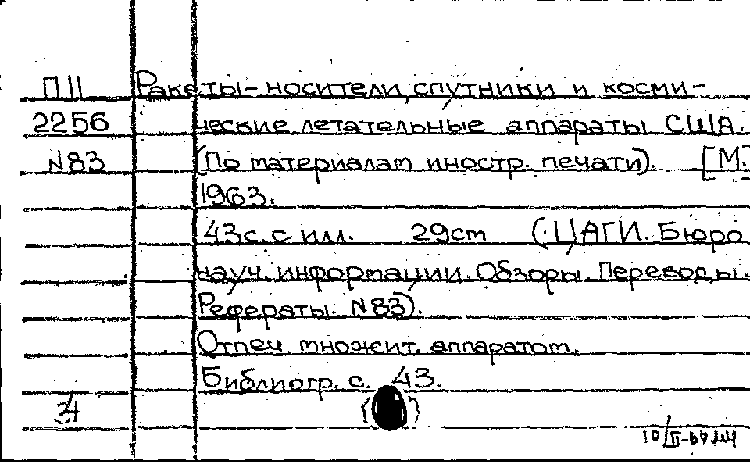 П11 Ракеты-носители, спутники и косми-
2256 ческие летательные аппараты США.
№83 (По материалам иностр. печати). [М.]
1963.
43с. с илл. 29см (ЦАГИ. Бюро
науч. информации. Обзоры. Переводы.
Рефераты. №83).
Отпеч. множит. аппаратом.
Библиогр. с. 43.
34